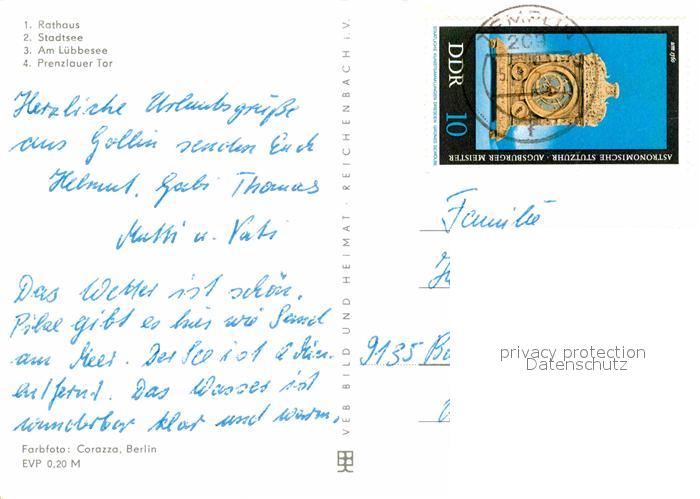 1. Rathaus
2. Stadtsee
3. Am Lübbesee
4. Prenzlauer Tor
Herzliche Urlaubsgrüße
aus Gollin senden Euch
Helmut, Gabi Thomas
Mutti u. Vati
Das Wetter ist schön.
Pilze gibt es hier wie Sand
am Meer. Der See ist 2 Min.
entfernt. Das Wasser ist
wunderbar klar und warm.
Farbfoto: Corazza, Berlin
EVP 0,20 M
VEB BILD UND HEIMAT · REICHENBACH i.V.
TEMPLIN
209
DDR
10
um 1560
STAATLICHE KUNSTSAMMLUNGEN DRESDEN · GRÜNES GEWÖLBE
ASTRONOMISCHE STUTZUHR · AUGSBURGER MEISTER
Familie
9135
privacy protection
Datenschutz